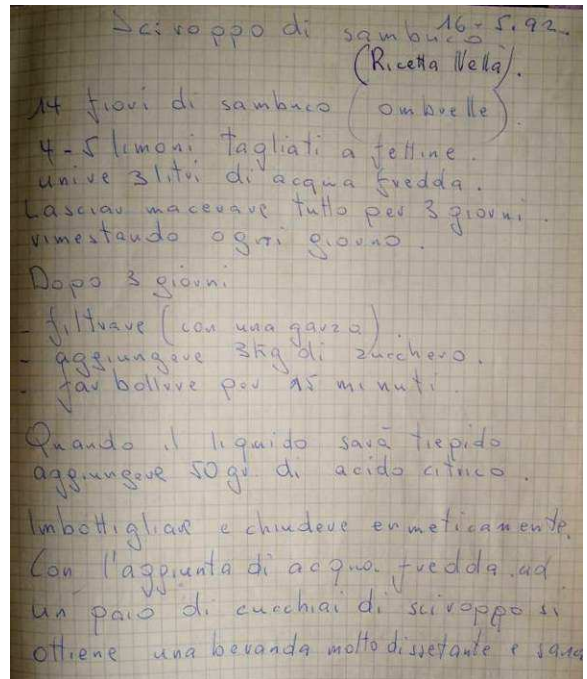 Sciroppo di sambuco 16-5.92.
(Ricetta Nella).
14 fiori di sambuco (ombrelle).
4-5 limoni tagliati a fettine.
unire 3 litri di acqua fredda.
Lasciar macerare tutto per 3 giorni.
rimestando ogni giorno.
Dopo 3 giorni
- filtrare (con una garza).
- aggiungere 3kg di zucchero.
- far bollire per 15 minuti.
Quando il liquido sarà tiepido
aggiungere 50 gr di acido citrico.
Imbottigliare e chiudere ermeticamente.
Con l'aggiunta di acqua fredda ad
un paio di cucchiai di sciroppo si
ottiene una bevanda molto dissetante e sana